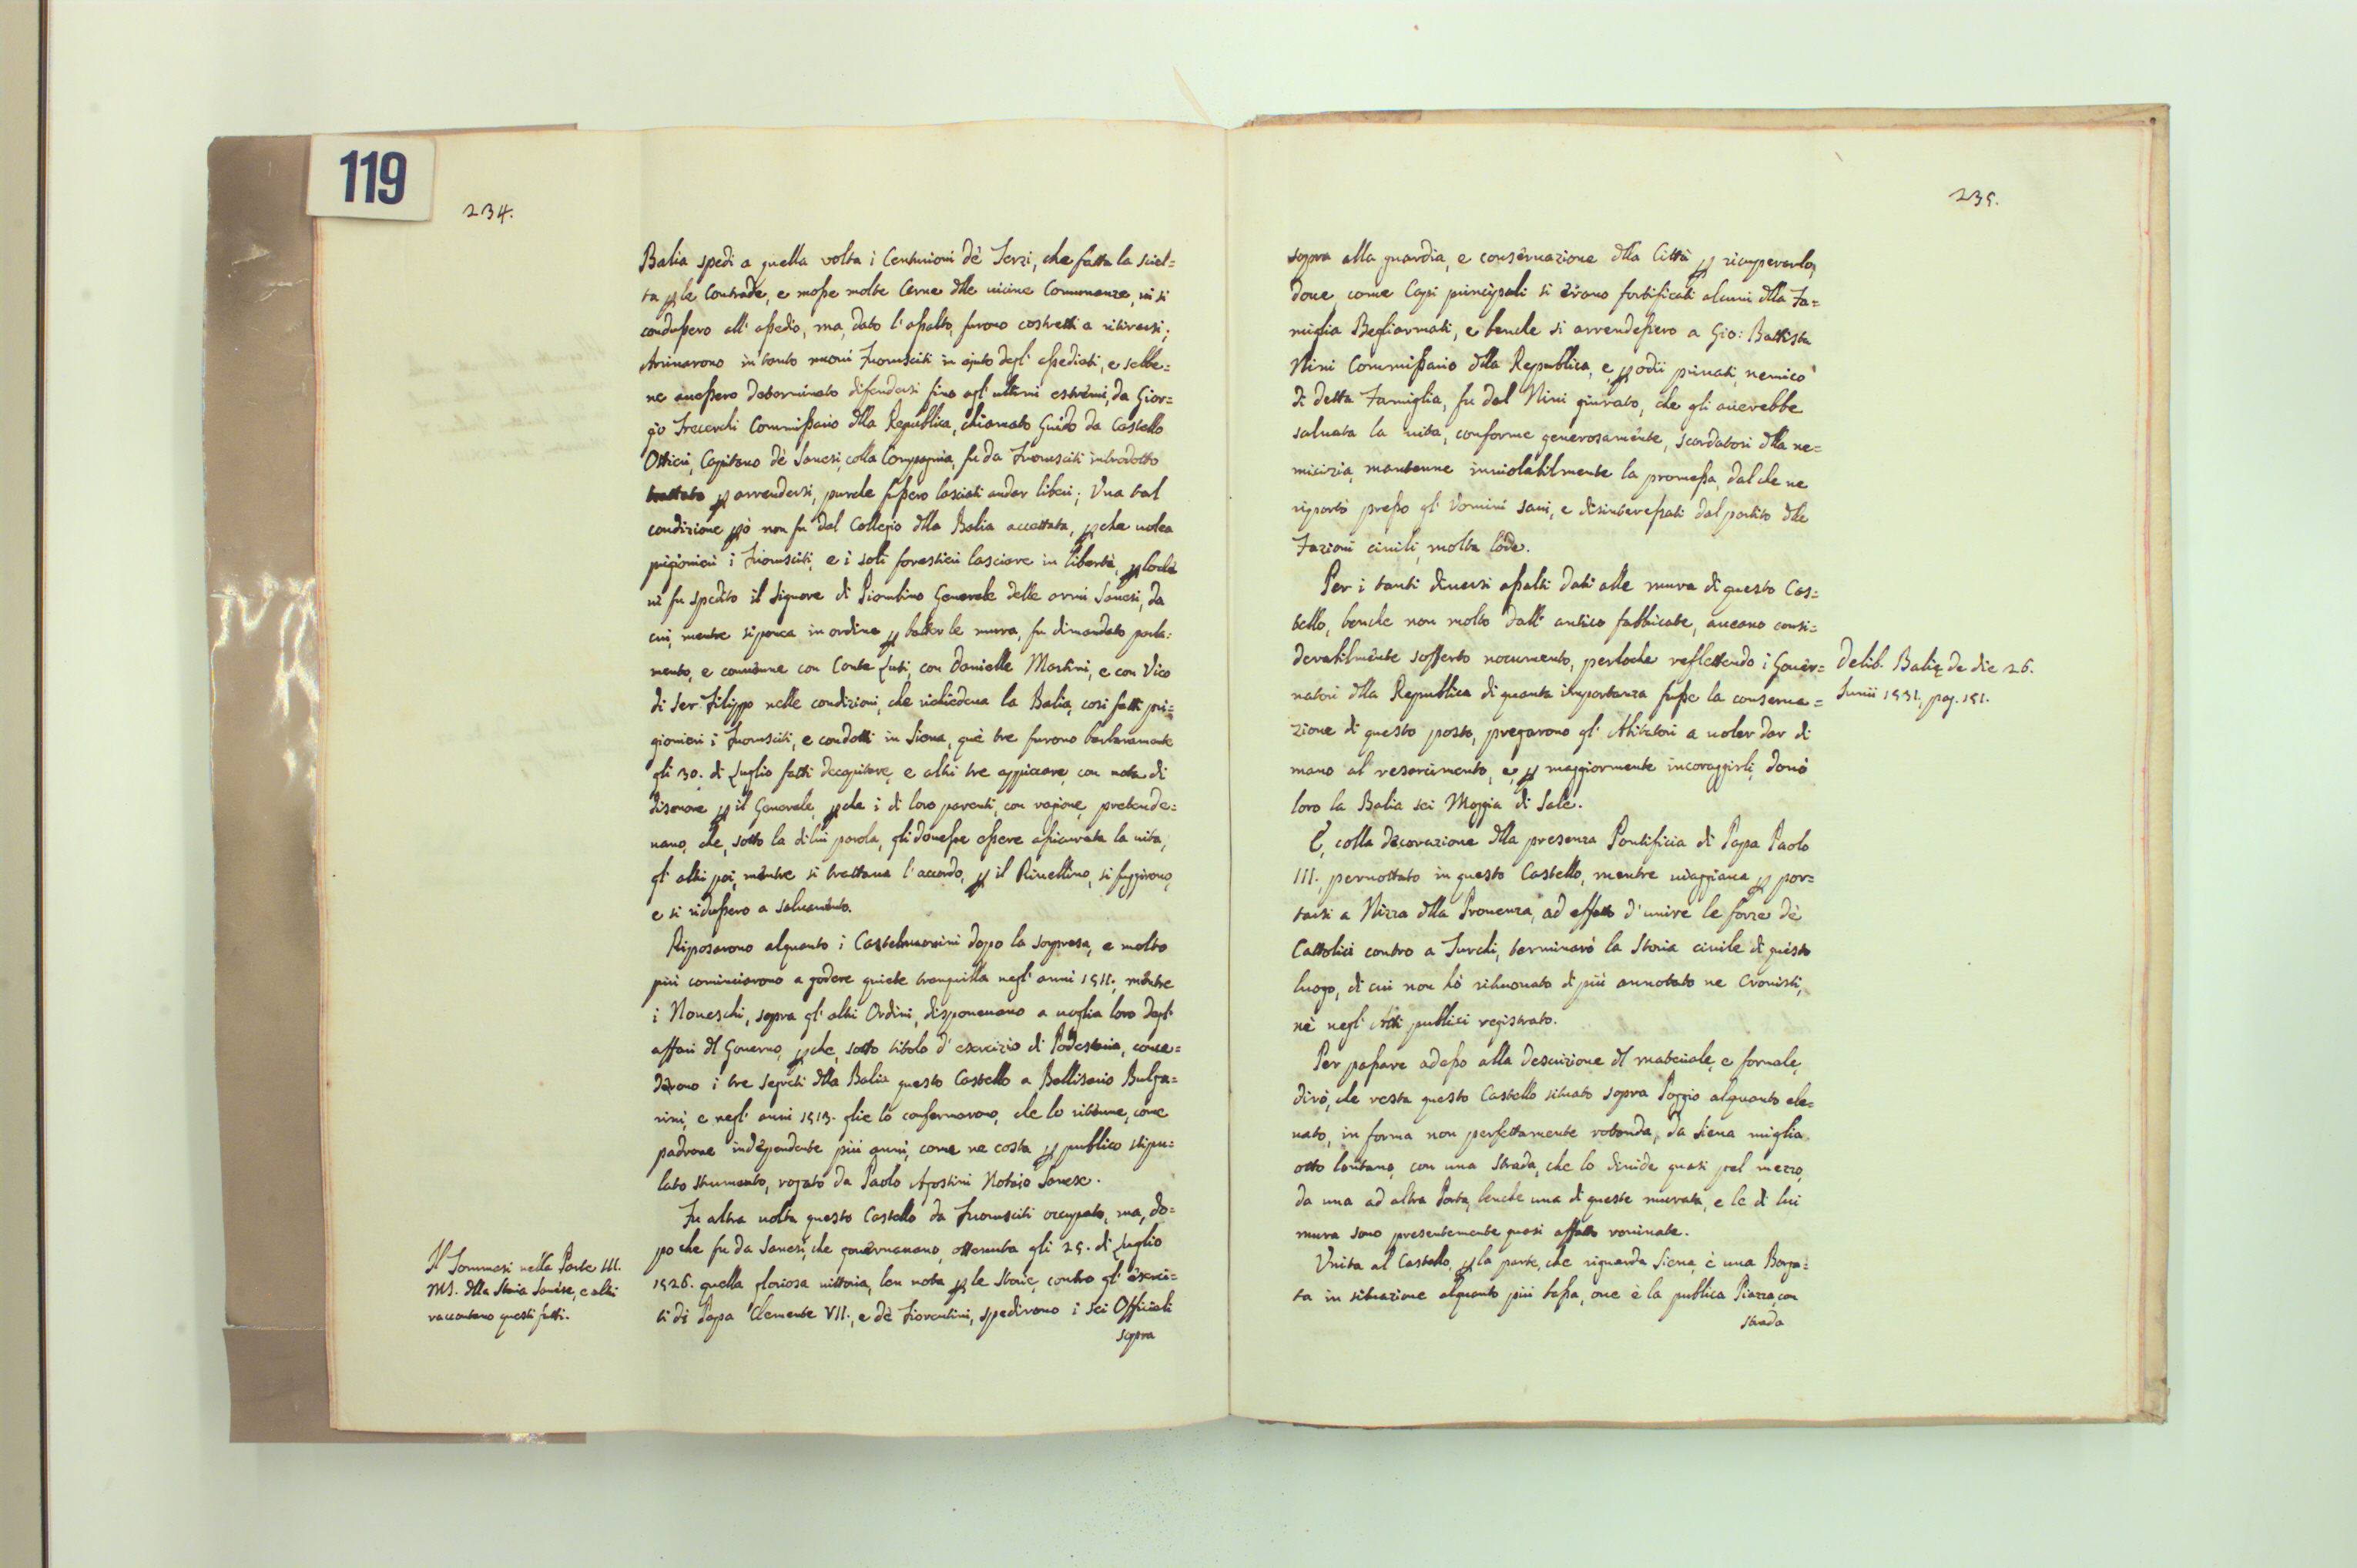 119
234.
Balia spedì a quella volta i Centurioni dè Terzi, che fatta la sciel=
ta p le Contrade, e mosse molte Cerne dlle vicine Communanze, ivi si
condussero all' assedio, ma, dato l' assalto, furono costretti a ritirarsi;
Arrivarono in tanto nuovi Fuorusciti in ajuto degl' assediati, e sebbe=
ne avessero determinato difendersi fino agl' ultimi estremi, da Gior=
gio Trecerchi Commissario dlla Republica, chiamato Guido da Castello
Ottieri, Capitano dè Sanesi, colla Compagnia, fu da Fuorusciti introdotto
trattato p arrendersi, purche fussero lasciati andar liberi; Una tal
condizione pò non fu dal Collegio dlla Balia accettata, p che volea
prigionieri i Fuorusciti, e i soli forestieri lasciare in libertà, p loche
vi fu spedito il Signore di Piombino Generale delle armi Sanesi, da
cui, mentre si ponea in ordine p batter le mura, fu dimandato parla=
mento, e convenne con Conte Luti, con Danielle Martini, e con Vico
di Ser Filippo nelle condizioni, che richiedeva la Balia, così fatti pri=
gionieri i Fuorusciti, e condotti in Siena, què tre furono barbaramente
gli 30. di Luglio fatti decapitare, e altri tre appiccare, con nota di
disonore p il Generale, p che i di loro parenti, con ragione, pretende=
vano, che, sotto la di lui parola, gli dovesse essere assicurata la vita,
gl' altri poi, mentre si trattava l' accordo, p il Rivellino, si fuggirono,
e si ridussero a salvamento.
Riposarono alquanto i Castelnuovini dopo la sorpresa, e molto
più cominciarono a godere quiete tranquilla negl' anni 1511., mentre
i Noveschi, sopra gl' altri Ordini, disponevano a voglia loro degl'
affari dl Governo, p che, sotto titolo d' esercizio di Podestaria, conce=
derono i tre Segreti dlla Balia questo Castello a Bellisario Bulga=
rini, e negl' anni 1513. glie lo confermarono, che lo ritenne, come
padrone independente più anni, come ne costa p publico stipu=
lato strumento, rogato da Paolo Agostini Notaio Sanese.
Fu altra volta questo Castello da Fuorusciti occupato, ma, do=
po che fu da Sanesi, che governavano, ottenuta gli 25. di Luglio
1526. quella gloriosa vittoria, ben nota p le Storie, contro gl' eserci=
ti di Papa Clemente VII., e dè Fiorentini, spedirono i sei Officiali
sopra
Il Tommasi nella Parte III.
MS. dlla Storia Sanese, e altri
raccontano questi fatti.
235.
sopra alla guardia, e conservazione dlla Città p ricuperarlo,
dove, come Capi principali si erano fortificati alcuni dlla Fa=
miglia Begliarmati, e benche si arrendessero a Gio: Battista
Nini Commissario dlla Republica, e, p odii privati, nemico
di detta Famiglia, fu dal Nini giurato, che gli averebbe
salvata la vita, conforme generosamente, scordatosi dlla ne=
micizia, mantenne inviolabilmente la promessa, dal che ne
riportò presso gl' Uomini savi, e disinteressati dal partito dlle
Fazioni civili, molta lode.
Per i tanti diversi assalti dati alle mura di questo Cas=
tello, benche non molto dall' antico fabbricate, aveano consi=
derabilmente sofferto nocumento, perloche reflettendo i Gover=
natori dlla Republica di quanta importanza fusse la conserva=
zione di questo posto, pregarono gl' Abitatori a voler dar di
mano al resarcimento, e, p maggiormente incoraggirli, donò
loro la Balia sei Moggia di Sale.
E, colla decorazione dlla presenza Pontificia di Papa Paolo
III., pernottato in questo Castello, mentre viaggiava p por=
tarsi a Nizza dlla Provenza, ad effetto d' unire le forze dè
Cattolici contro a Turchi, terminarò la Storia civile di questo
luogo, di cui non hò ritrovato di più annotato ne Cronisti,
nè negl' Atti publici registrato.
Per passare adesso alla descrizione dl materiale, e formale,
dirò, che resta questo Castello situato sopra Poggio alquanto ele=
vato, in forma non perfettamente rotonda, da Siena miglia
otto lontano, con una strada, che lo divide quasi pel mezzo,
da una ad altra Porta, benche una di queste murata, e le di lui
mura sono presentemente quasi affatto rovinate.
Unita al Castello, p la parte, che riguarda Siena, è una Borga=
ta in situazione alquanto più bassa, ove è la publica Piazza, con
strada
Delib. Balię de die 26.
Junii 1531., pag. 151.